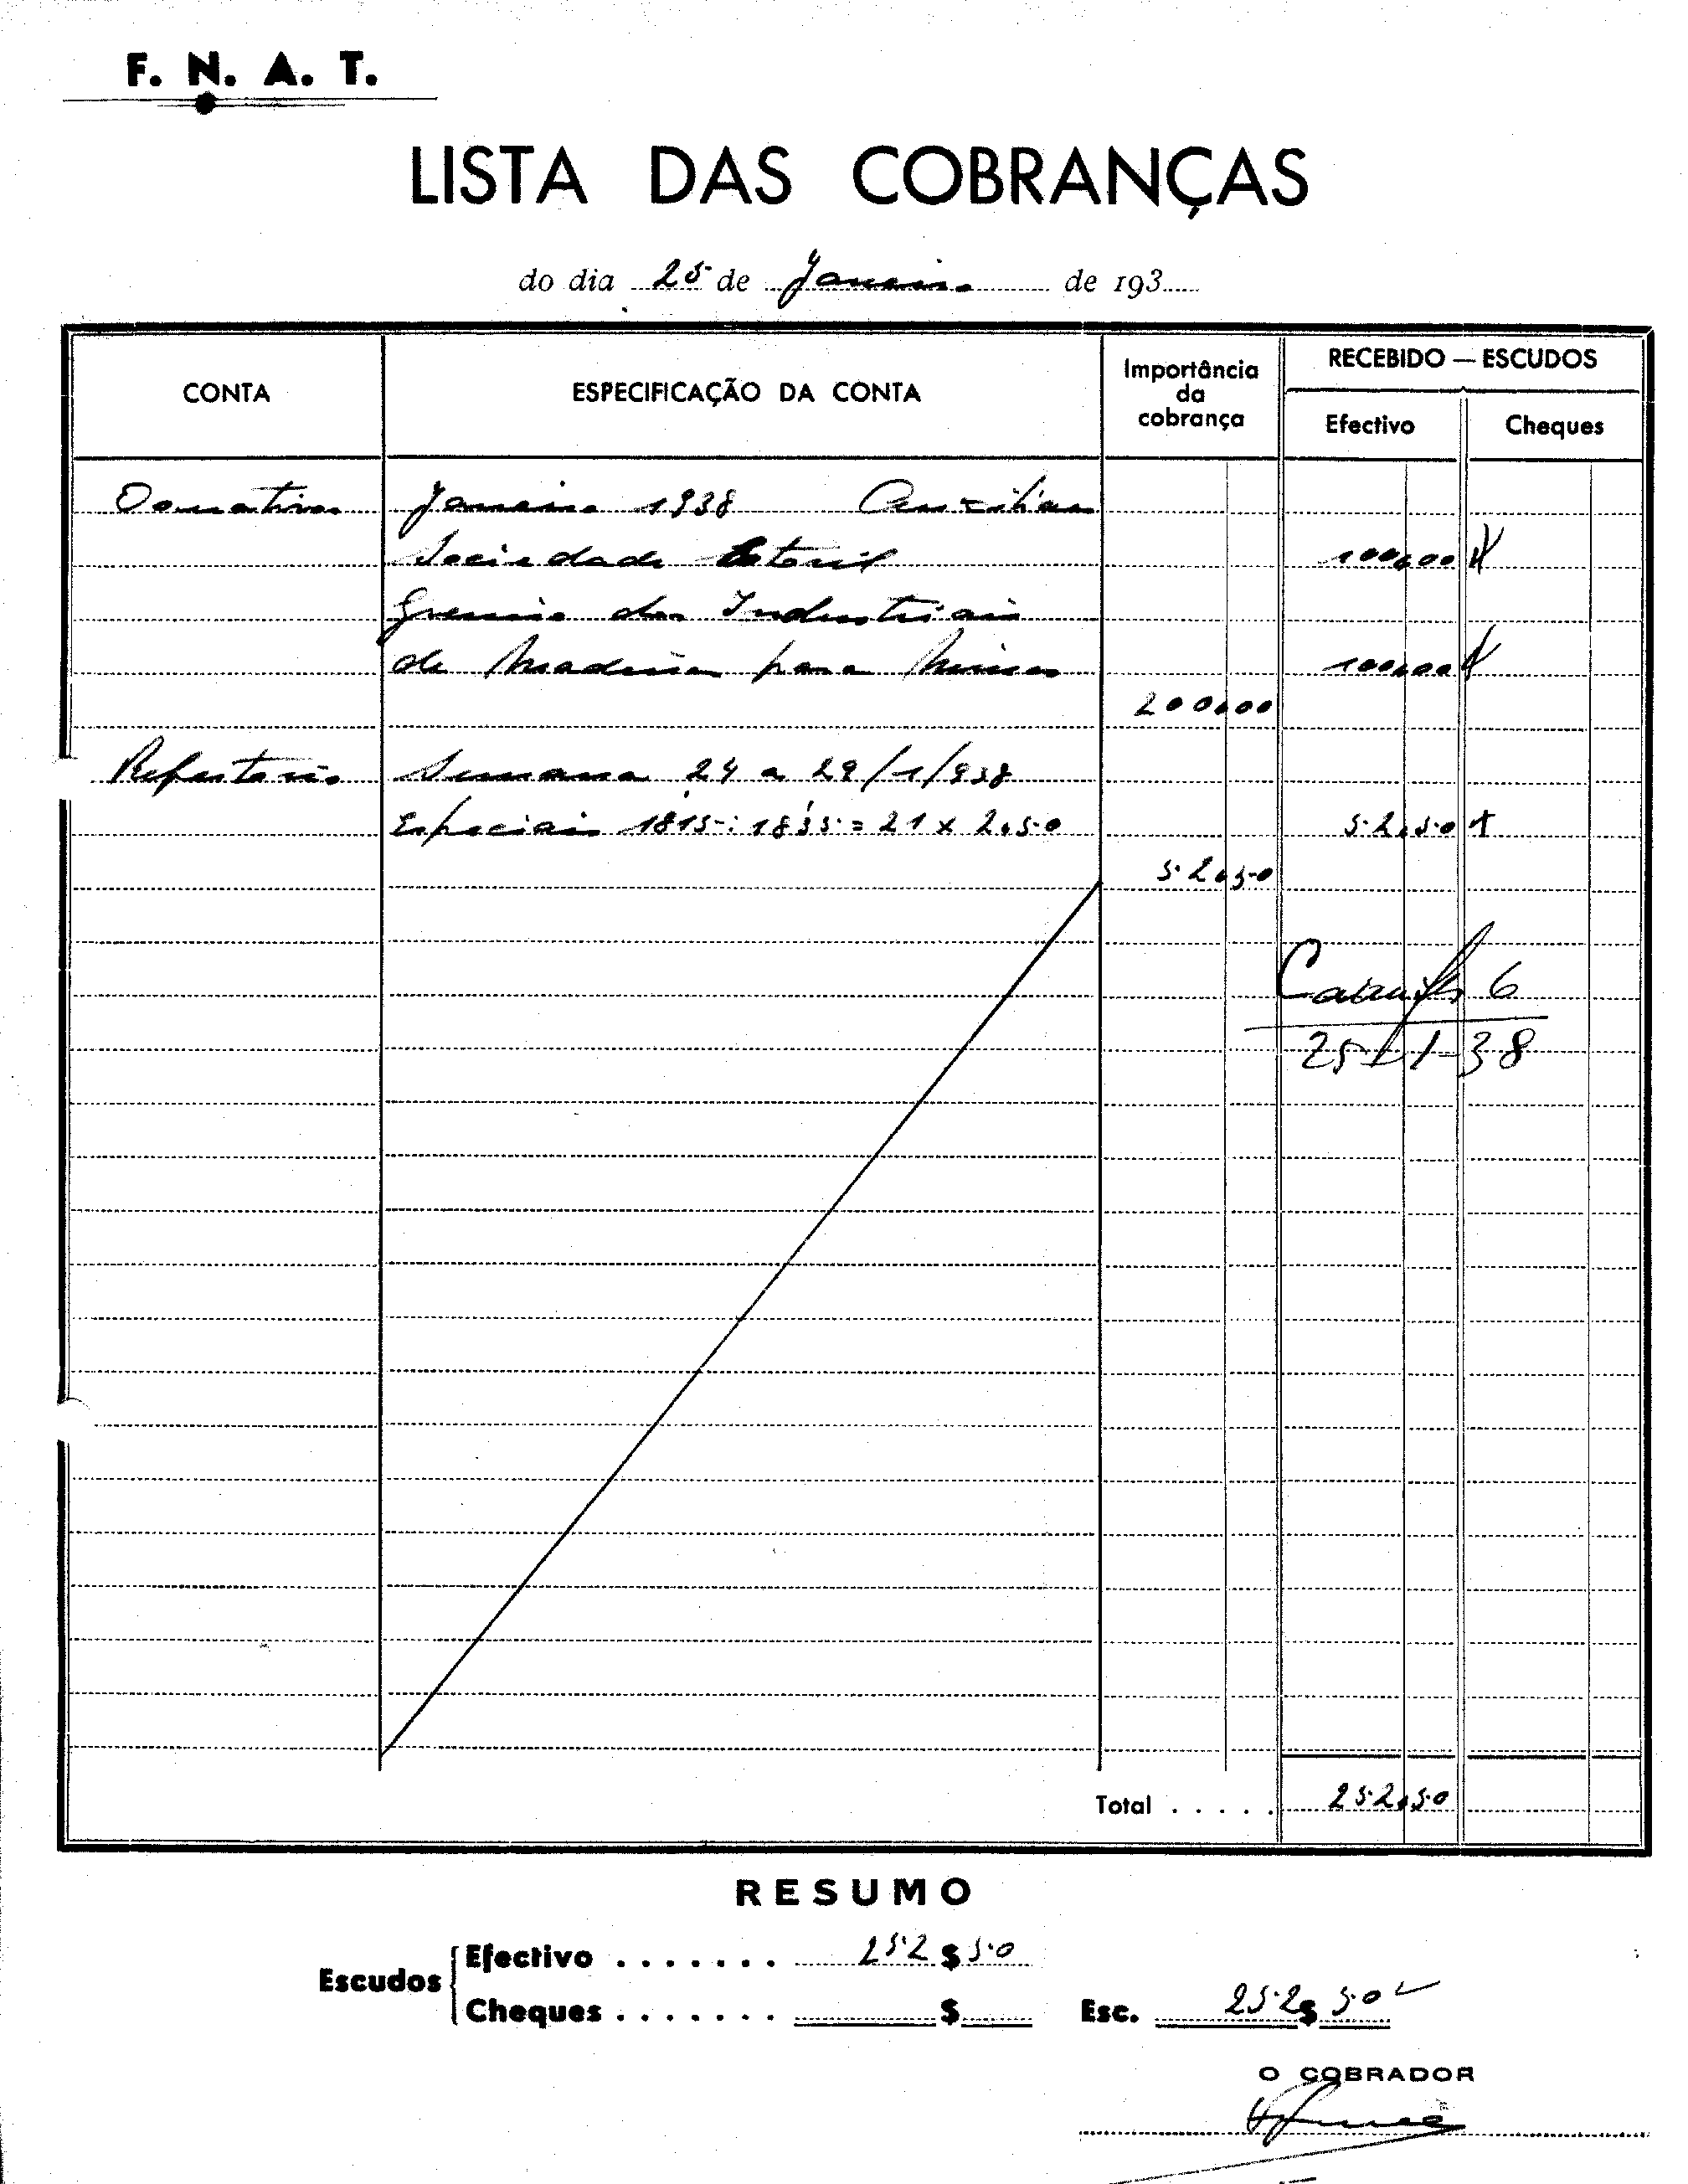 F. N. A. T.
LISTA DAS COBRANÇAS
do dia 25 de Janeiro de 193
CONTA ESPECIFICAÇÃO DA CONTA Importância da cobrança RECEBIDO — ESCUDOS
Efectivo Cheques
Donativos Janeiro 1938 Auxiliar
Sociedade Estoril 100,00
Gremio dos Industriais
de Madeira para Minas 100,00
200,00
Refeitorio Semana 24 a 29/1/938
Especiais 1815 : 1835 = 21 x 2,50 52,50
52,50
6
25-1-38
Total . . . . . 252,50
RESUMO
Escudos
Efectivo . . . . . . . 252$50
Cheques . . . . . . . $ Esc. 252$50
O COBRADOR